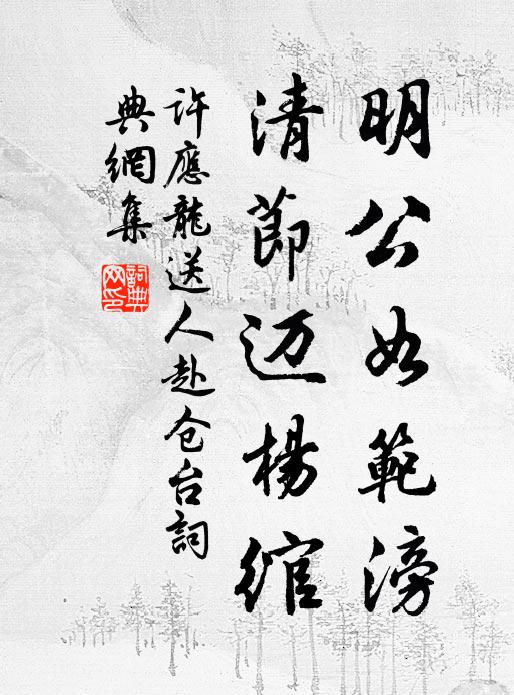 明公如範滂
清節迈楊綰
許應龍送人赴仓台詞
典網集
詞典
网印